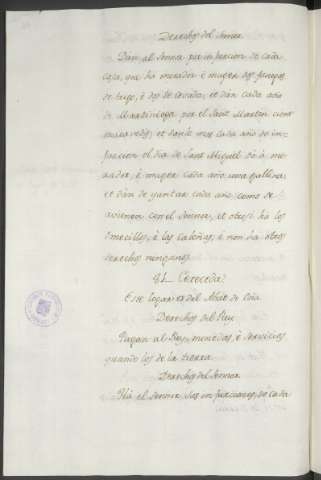 Derechos del Sennor
Dan al Sennor por infurcion de cada
casa, que há morador, è muger dos fanegas
de trigo, è dos de cevada, et dan cada año
de Martiniega por el Sant Martin cient
maravedis; et danle mas cada año de in-
furcion el dia de Sant Miguel do à mo-
rador, è muger cada año una gallina;
et dan de yantar cada año, como se
avienen con el Sennor, et otrosi ha los
omecillos, è las caloñas, è non ha otros
derechos ningunos.
Cereceda
Este logar es del Abat de Oña
Derechos del Rey
Pagan al Rey monedas, è servicios
quando los de la tierra
Derechos del Sennor
Há el Sennor sus infurciones, de cada